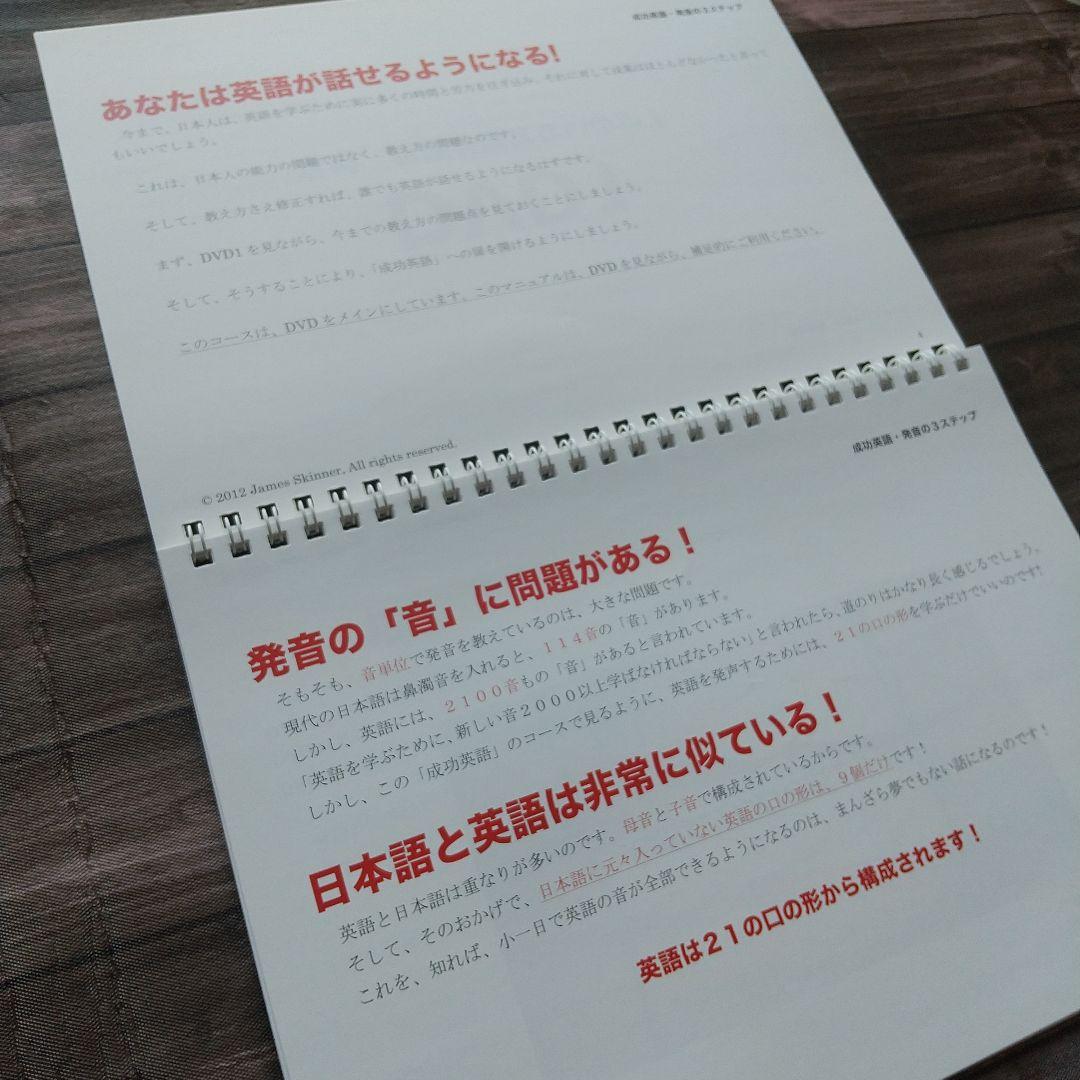 成功英語・発音の３ステップ
あなたは英語が話せるようになる!
今まで、日本人は、英語を学ぶために実に多くの時間と労力を注ぎ込み、それに対して成果はほとんどなかったと言って
もいいでしょう。
これは、日本人の能力の問題ではなく、教え方の問題なのです。
そして、教え方さえ修正すれば、誰でも英語が話せるようになるはずです。
まず、DVD1 を見ながら、今までの教え方の問題点を見ておくことにしましょう。
そして、そうすることにより、「成功英語」への扉を開けるようにしましょう。
このコースは、DVD をメインにしています。このマニュアルは、DVD を見ながら、補足的にご利用ください。
© 2012 James Skinner, All rights reserved.
成功英語・発音の３ステップ
発音の「音」に問題がある！
そもそも、音単位で発音を教えているのは、大きな問題です。
現代の日本語は鼻濁音を入れると、１１４音の「音」があります。
しかし、英語には、２１００音もの「音」があると言われています。
「英語を学ぶために、新しい音２０００以上学ばなければならない」と言われたら、道のりはかなり長く感じるでしょう。
しかし、この「成功英語」のコースで見るように、英語を発声するためには、２１の口の形を学ぶだけでいいのです!
日本語と英語は非常に似ている！
英語と日本語は重なりが多いのです。母音と子音で構成されているからです。
そして、そのおかげで、日本語に元々入っていない英語の口の形は、９個だけです！
これを、知れば、小一日で英語の音が全部できるようになるのは、まんざら夢でもない話になるのです！
英語は２１の口の形から構成されます！